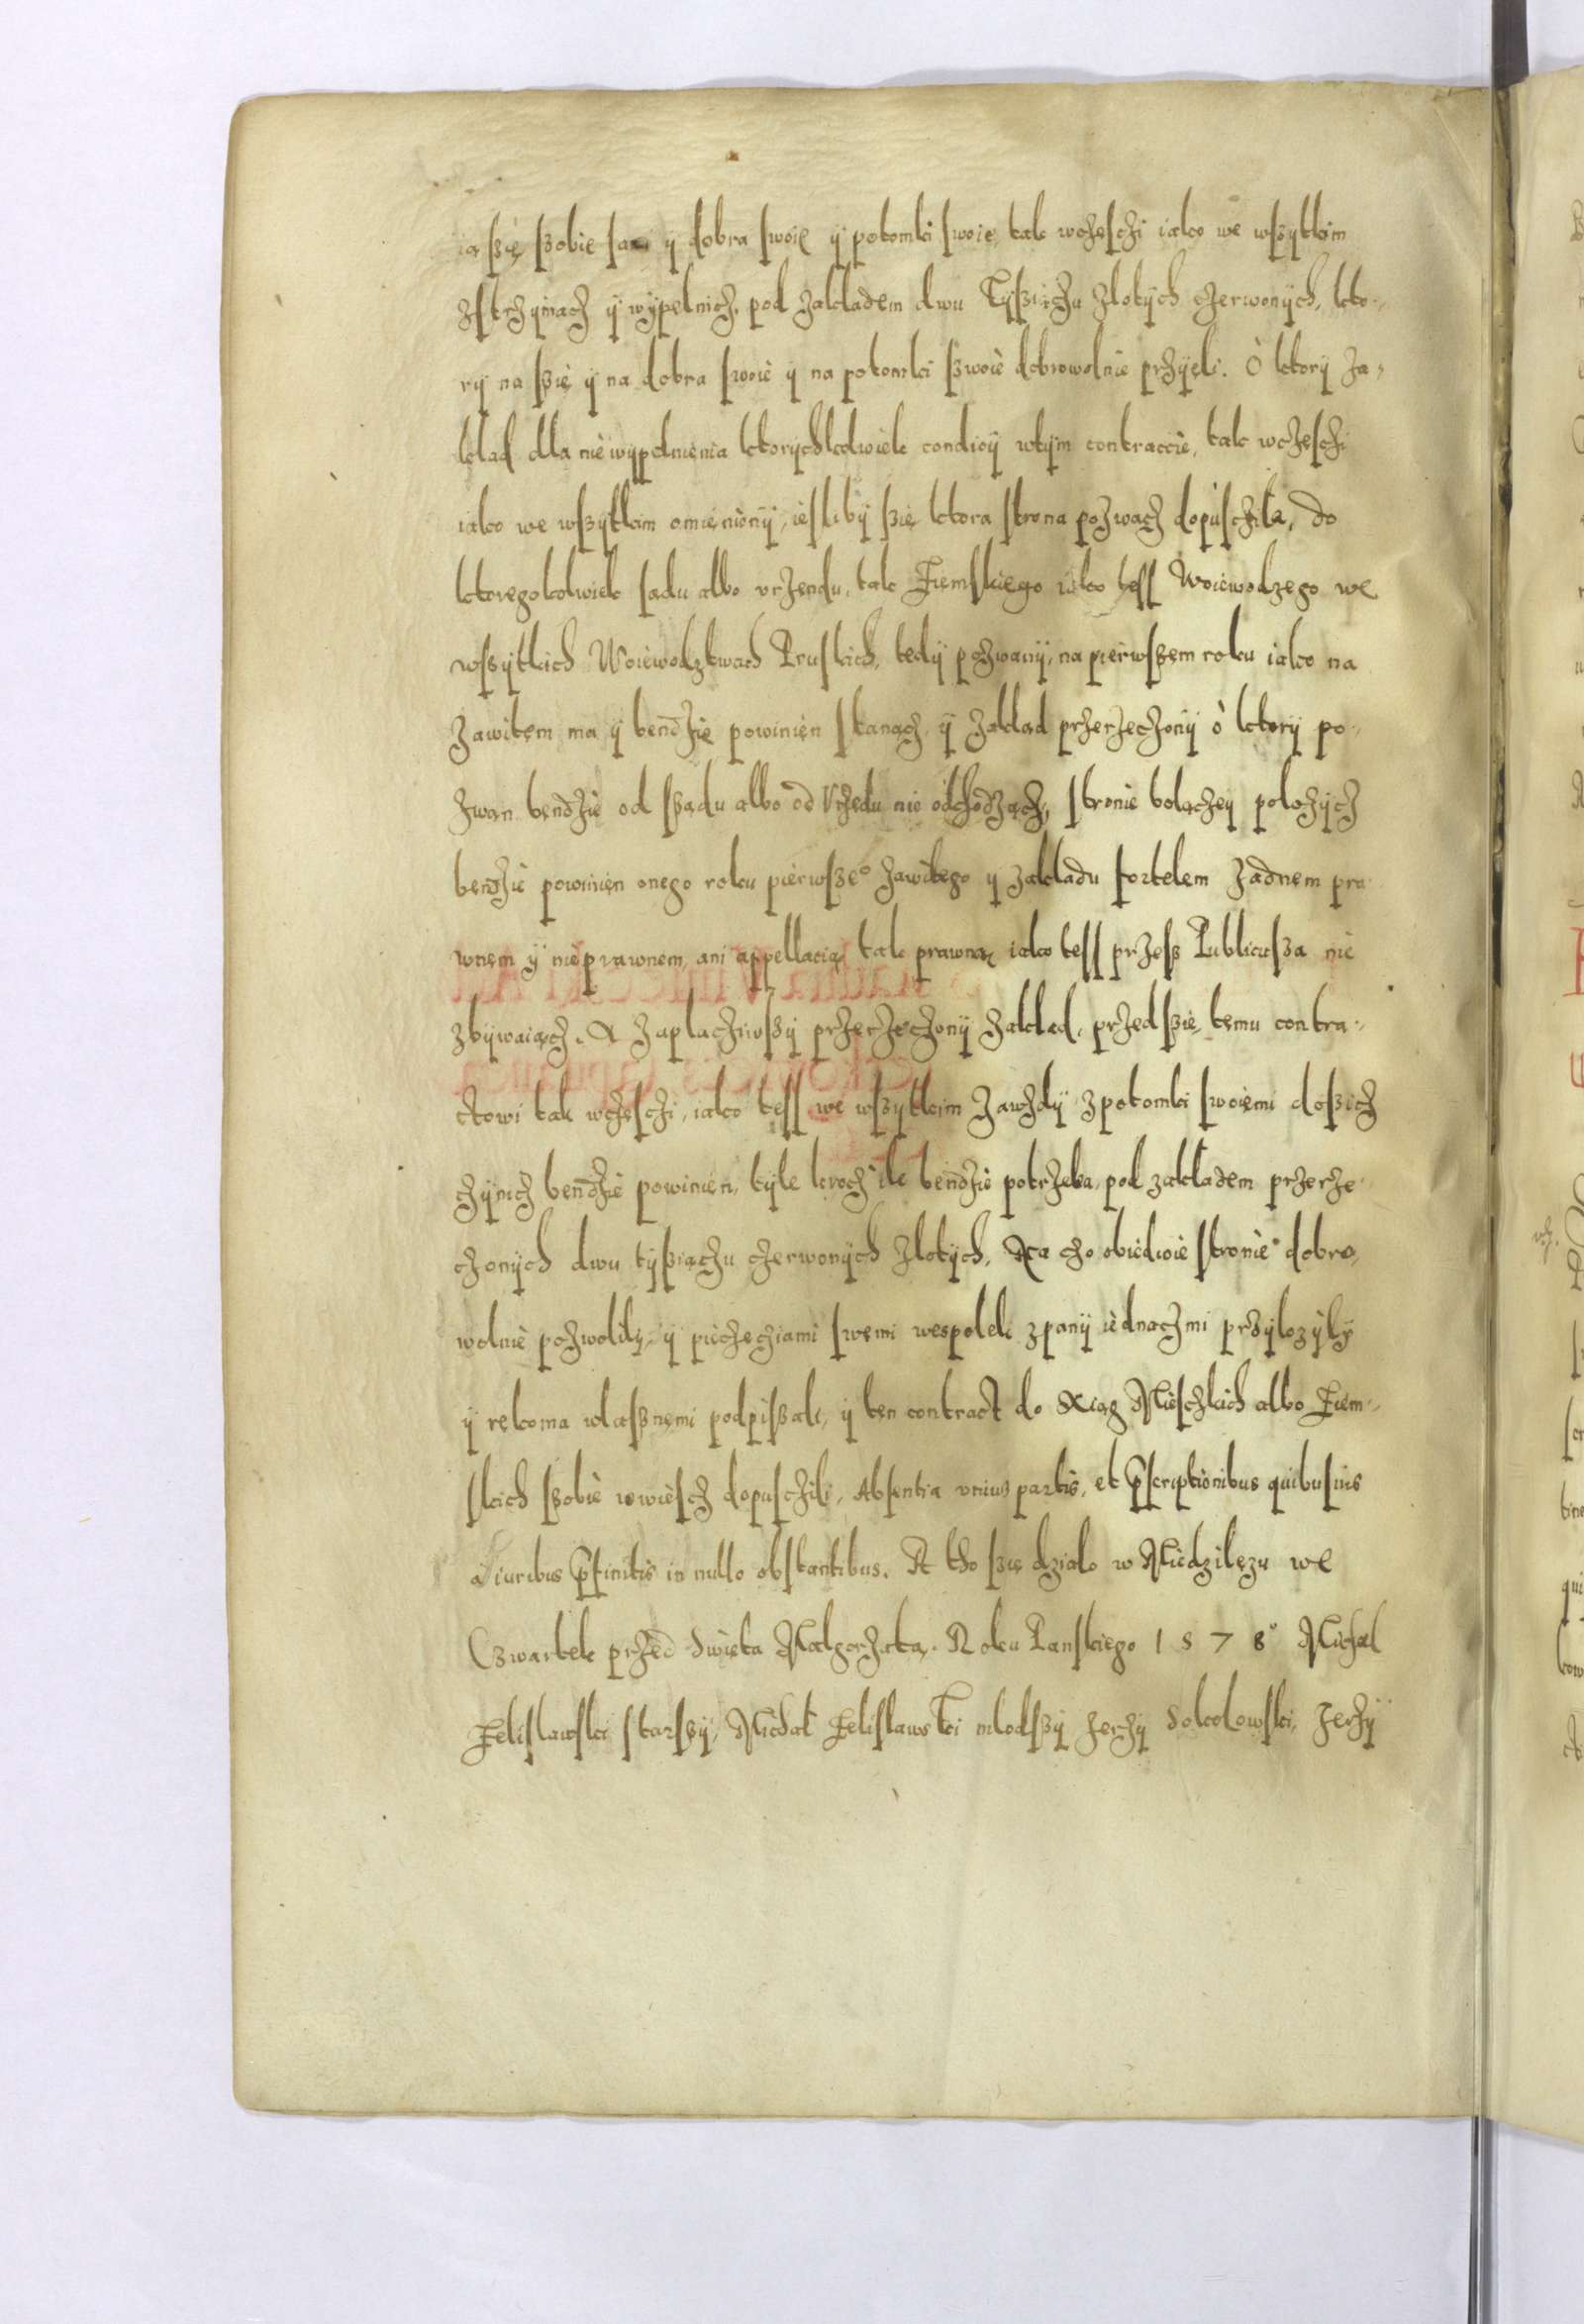 ią szię szobie sam y dobra swoie y potomki swoie, tak wczesczi iako we wszytkim
zstrzymacz y wypelnicz, pod zakladem dwu Tysziączu zlotych czerwonych, kto-
ry na szię y na dobra swoie y na potomki szwoie dobrowolnie przyięli. O ktory za-
klad dla niewypelnienia ktorychkolwiek condiciy wtym contraccie, tak wczesczi
iako we wszytkim omieniony, iesliby szię ktora strona pozwacz dopusczila, do
ktoregokolwiek sądu albo vrzendu, tak Ziemskiego iako tess Woiewodzego we
wszytkich Woiewodztwach Pruskich, tedy pozwany, na pierwszem roku iako na
zawitem ma y bendzie powinien stanącz, y zaklad przerzeczony o ktory po-
zwan bendzie od sządu albo od Vrzędu nie odchodzącz, stronie bolączey polozycz
bendzie powinien onego roku pierwsze° zawitego y zakladu fortelem zadnem pra
wnem y nieprawnem, ani appellacią tak prawną iako tess przesz Publicusza nie
zbywaiącz. A zaplacziwszy przerzeczony zaklad, przedszię temu contra-
ctowi tak wczesczi, iako tess we wszytkim zawzdy z potomki swoiemi dosicz
czynicz bendzie powinien, tyle krocz ile bendzie potrzeba, pod zakladem przerze-
czonych dwu tysziączu czerwonych zlotych. Na czo obiedwie stronie dobro-
wolnie pozwolily, y pieczęciami swemi wespolek z pany iednaczmi przylozyly
y rekoma wlasznemi podpiszali, y ten contract do Xiąg Mieszkich albo Ziem-
skich szobie wwiescz dopusczili, Absentia vnius partis, et p̱scriptionibus quibusuis
a iuribus p̱finitis in nullo obstantibus. A tho szię dzialo w Miedzilęzu we
Czwartek przed Swięta Malgorzetą. Roku Panskiego 1578° Michal
Zelislawski starszy, Michal Zelislawski mlodszy Jerzy Sokolowski, Jerzy